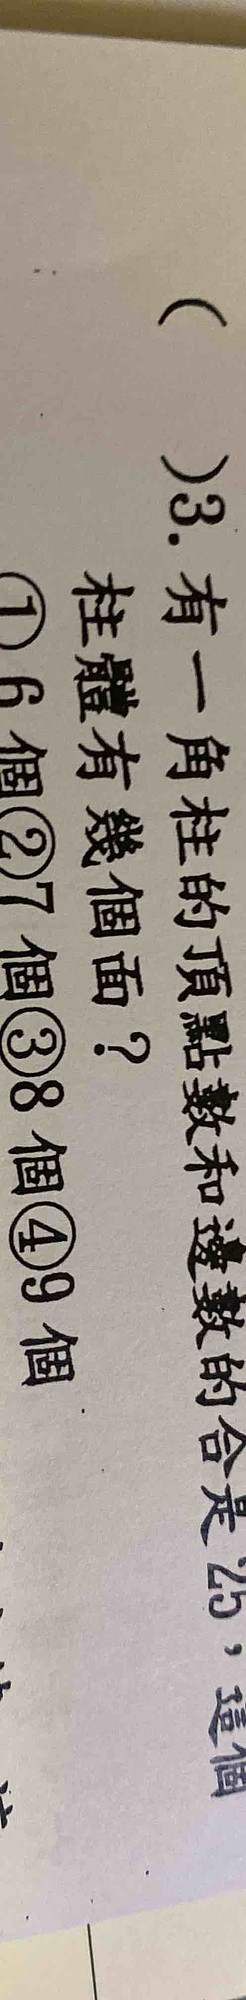 ( )3. 有一角柱的頂點數和邊數的合是25，這個
柱體有幾個面？
①6個②7個③8個④9個